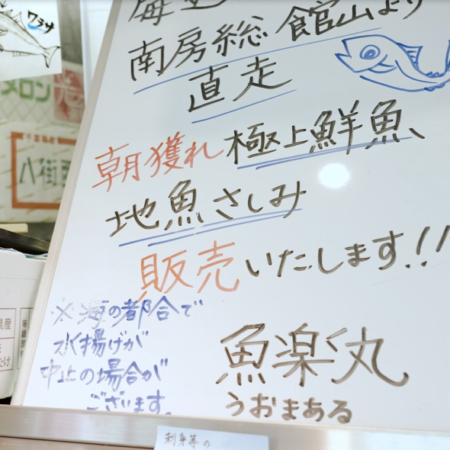 ワラサ
南房総 館山より
直走
朝獲れ極上鮮魚、
地魚さしみ
販売いたします!!
※海の都合で
水揚げが
中止の場合が
ございます。
魚楽丸
うおまある
メロン
八街西
刺身等の